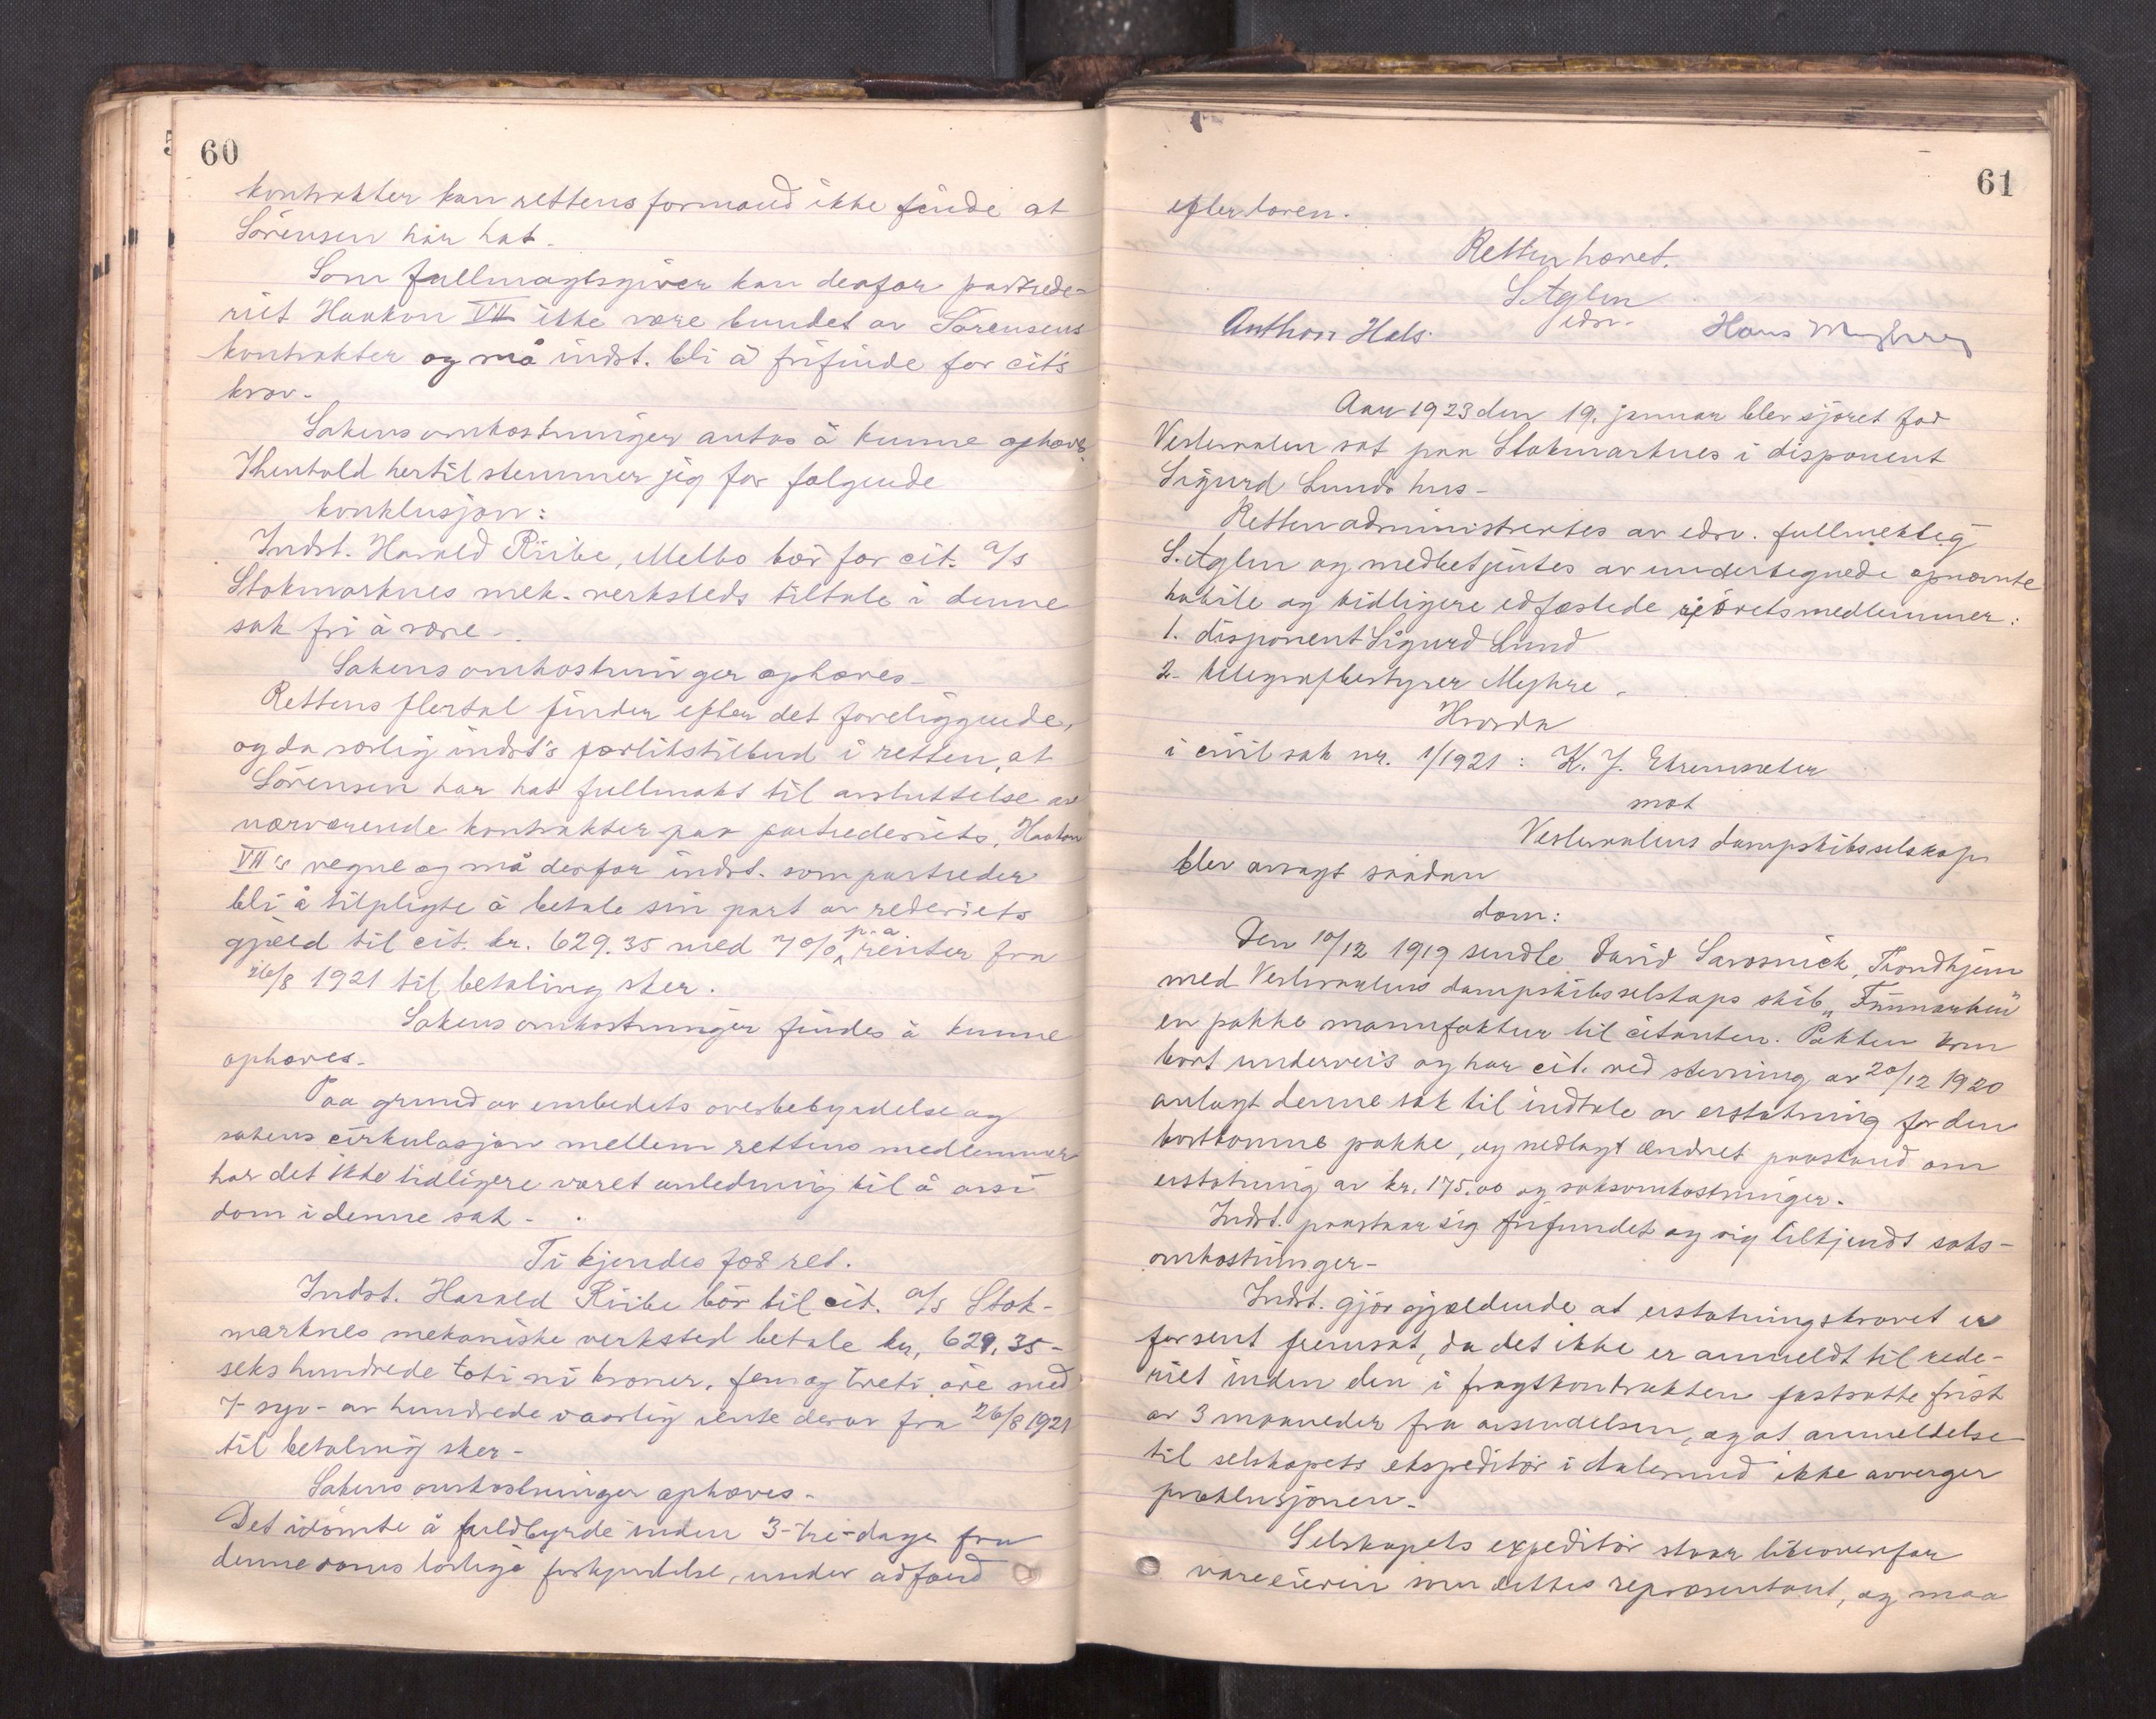 60
kontrakter kan rettens formand ikke finde at
Sörensen har hat.
Som fullmagtsgiver kan derfor partrede-
riet Haakon VII ikke være bundet av Sörensens
kontrakter og må indst. bli å frifinde for cit's
krav.
Sakens omkostninger antas å kunne ophæves
I henhold hertil stemmer jeg for følgende
konklusjon:
Indst. Harald Riibe, Melbo bör for cit. a/s
Stokmarknes mek. verksteds tiltale i denne
sak fri å være.
Sakens omkostninger ophæves.
Rettens flertal finder efter det foreliggende,
og da særlig indst's forlikstilbud i retten, at
Sörensen har hat fullmakt til avsluttelse av
nærværende kontrakter paa partrederiets, Haakon
VII's vegne og må derfor indst. som partreder
bli å tilpligte å betale sin part av rederiets
gjæld til cit. kr. 629.35 med 7% p.a. renter fra
26/8 1921 til betaling sker.
Sakens omkostninger findes å kunne
ophæves.
Paa grund av embedets overbebyrdelse og
sakens cirkulasjon mellem rettens medlemmer
har det ikke tidligere været anledning til å avsi
dom i denne sak.
Ti kjendes for ret.
Indst. Harald Riibe bör til cit. a/s Stok-
marknes mekaniske verksted betale kr. 629.35 -
seks hundrede toti ni kroner, fem og treti øre med
7 - syv - av hundrede i aarlig rente derav fra 26/8 1921
til betaling sker -
Sakens omkostninger ophæves.
Det idömte å fuldbyrde inden 3 - tre - dage fra
denne doms lovlige forkyndelse, under adfærd
61
efter loven.
Retten hævet.
S. Aglen
edsv.
Anthon Hals. Hans Myhre
Aar 1923 den 19. januar blev sjöret for
Vesteraalen sat paa Stokmarknes i disponent
Sigurd Lunds hus -
Retten administrertes av edsv. fullmektig
S. Aglen og medbetjentes av undertegnede opnævnte
habile og tidligere edfæstede sjöretsmedlemmer:
1. disponent Sigurd Lund
2. telegrafbestyrer Myhre.
Hvorda
i civil sak nr. 1/1921: K. J. Ehrensæter
mot
Vesteraalens dampskibsselskap
blev avsagt saadan
dom:
Den 10/12 1919 sendte David Savosnick, Trondhjem
med Vesteraalens dampskibsselskaps skib "Finmarken"
en pakke manufaktur til citanten. Pakken kom
bort underveis og har cit. ved stevning av 20/12 1920
anlagt denne sak til indtale av erstatning for den
bortkomne pakke, og nedlagt ændret paastand om
erstatning av kr. 175.00 og saksomkostninger.
Indst. paastaar sig frifundet og sig tilkjendt saks-
omkostninger -
Indst. gjör gjældende at erstatningskravet er
for sent fremsat, da det ikke er anmeldt til rede-
riet inden den i fragtkontrakten fastsatte frist
av 3 maaneder fra avsendelsen, og at anmeldelse
til selskapets ekspeditör i Aalesund ikke avverger
præklusjonen.
Selskapets expeditör staar likeoverfor
vareeieren som dettes repræsentant, og maa